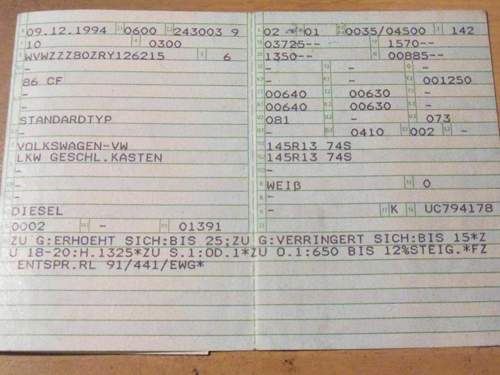 09.12.1994 0600 243003 9
10 0300
WVWZZZ80ZRY126215 6
-
86 CF
-
-
STANDARDTYP
-
VOLKSWAGEN-VW
LKW GESCHL.KASTEN
-
-
-
DIESEL
0002 - 01391
02 01 0035/04500 142
03725-- 1570--
1350-- 00885--
- - -
- - 001250
00640 00630 -
00640 00630 -
081 - 073
- 0410 002 -
145R13 74S
145R13 74S
-
-
WEIß 0
-
- K UC794178
-
ZU G:ERHOEHT SICH:BIS 25;ZU G:VERRINGERT SICH:BIS 15*Z
U 18-20:H.1325*ZU S.1:OD.1*ZU O.1:650 BIS 12%STEIG.*FZ
ENTSPR.RL 91/441/EWG*